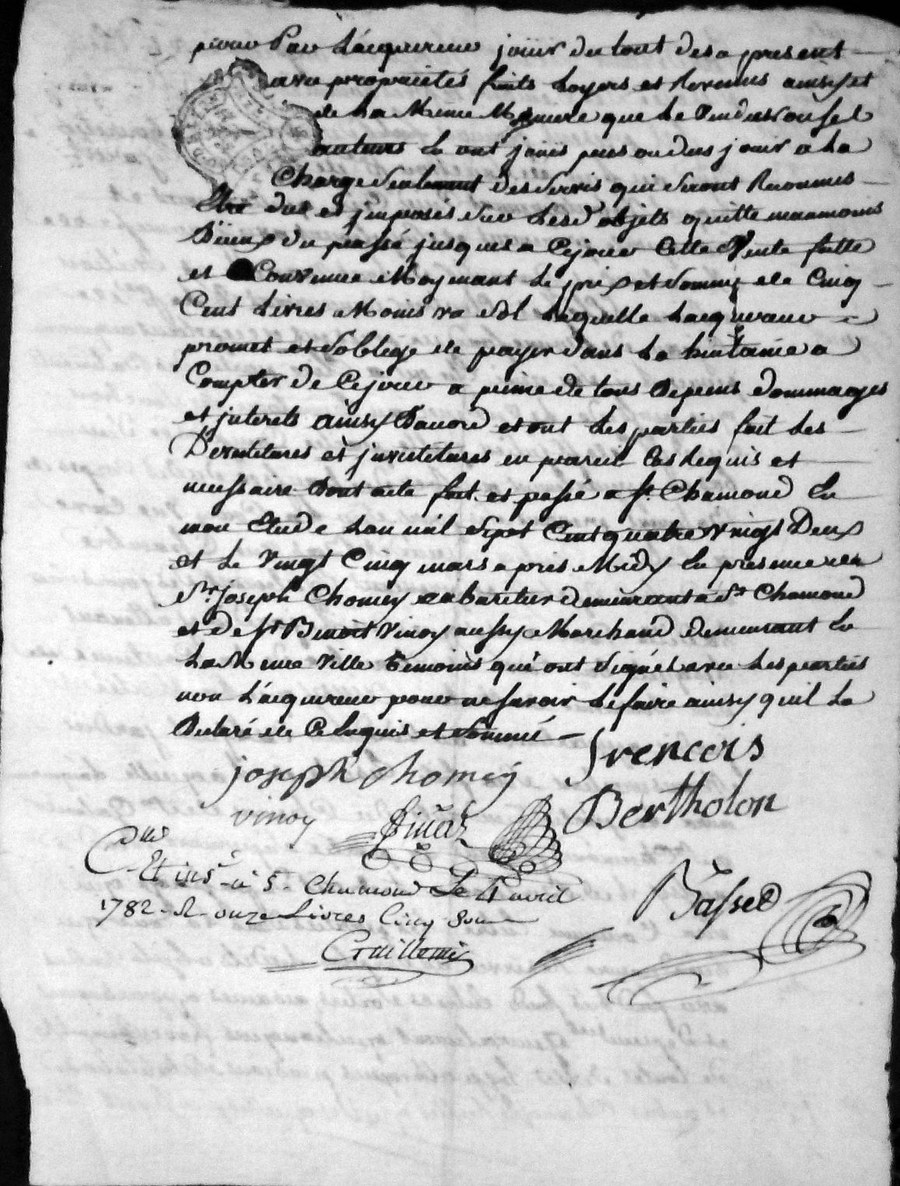 pour Par Lacquereur jouir du tout des a present
avec proprietés fruits Loyers et Revenus ainsy et
de La Meme Maniere que Le Vendeur ou ses
auteurs En ont jouis pues ou dus jouir a La
Charge Seulement des Servis qui Seront Reconnus
Etre dus et jmposés Sur Lesd objets quitte neanmoins
Diceux du passé jusques a Cejour Cette Vente faitte
et Convenue Moyenant Le prix et Somme de Cinq
Cent Livres Laquelle Lacquereur
promet et Soblige de payer dans La huitaine a
Compter de Cejour a peine de tous Depens dommages
et jnterets ainsy Daccord et ont Les parties fait Les
Devetitures et jnvetitures en pareil Cas Requis et
necessaire Dont acte fait et passé a St. Chamond En
mon Etude Lan mil Sept Cent quatre vingt Deux
et Le Vingt Cinq mars apres Midy En presence de
Sr. joseph Chomey cabaretier demeurant a St Chamond
et de Sr Benoit Vinoy aussy Marchand demeurant En
La Meme Ville temoins qui ont Signé avec Les parties
non Lacquereur pour ne Savoir Le faire ainsy quil La
Declaré de Ce Enquis et Sommé
joseph chomey frencois
vinoy Bertholon
Et ins. a St. Chamond Le 4 avril
1782. R onze Livres Cinq Sou
Basset